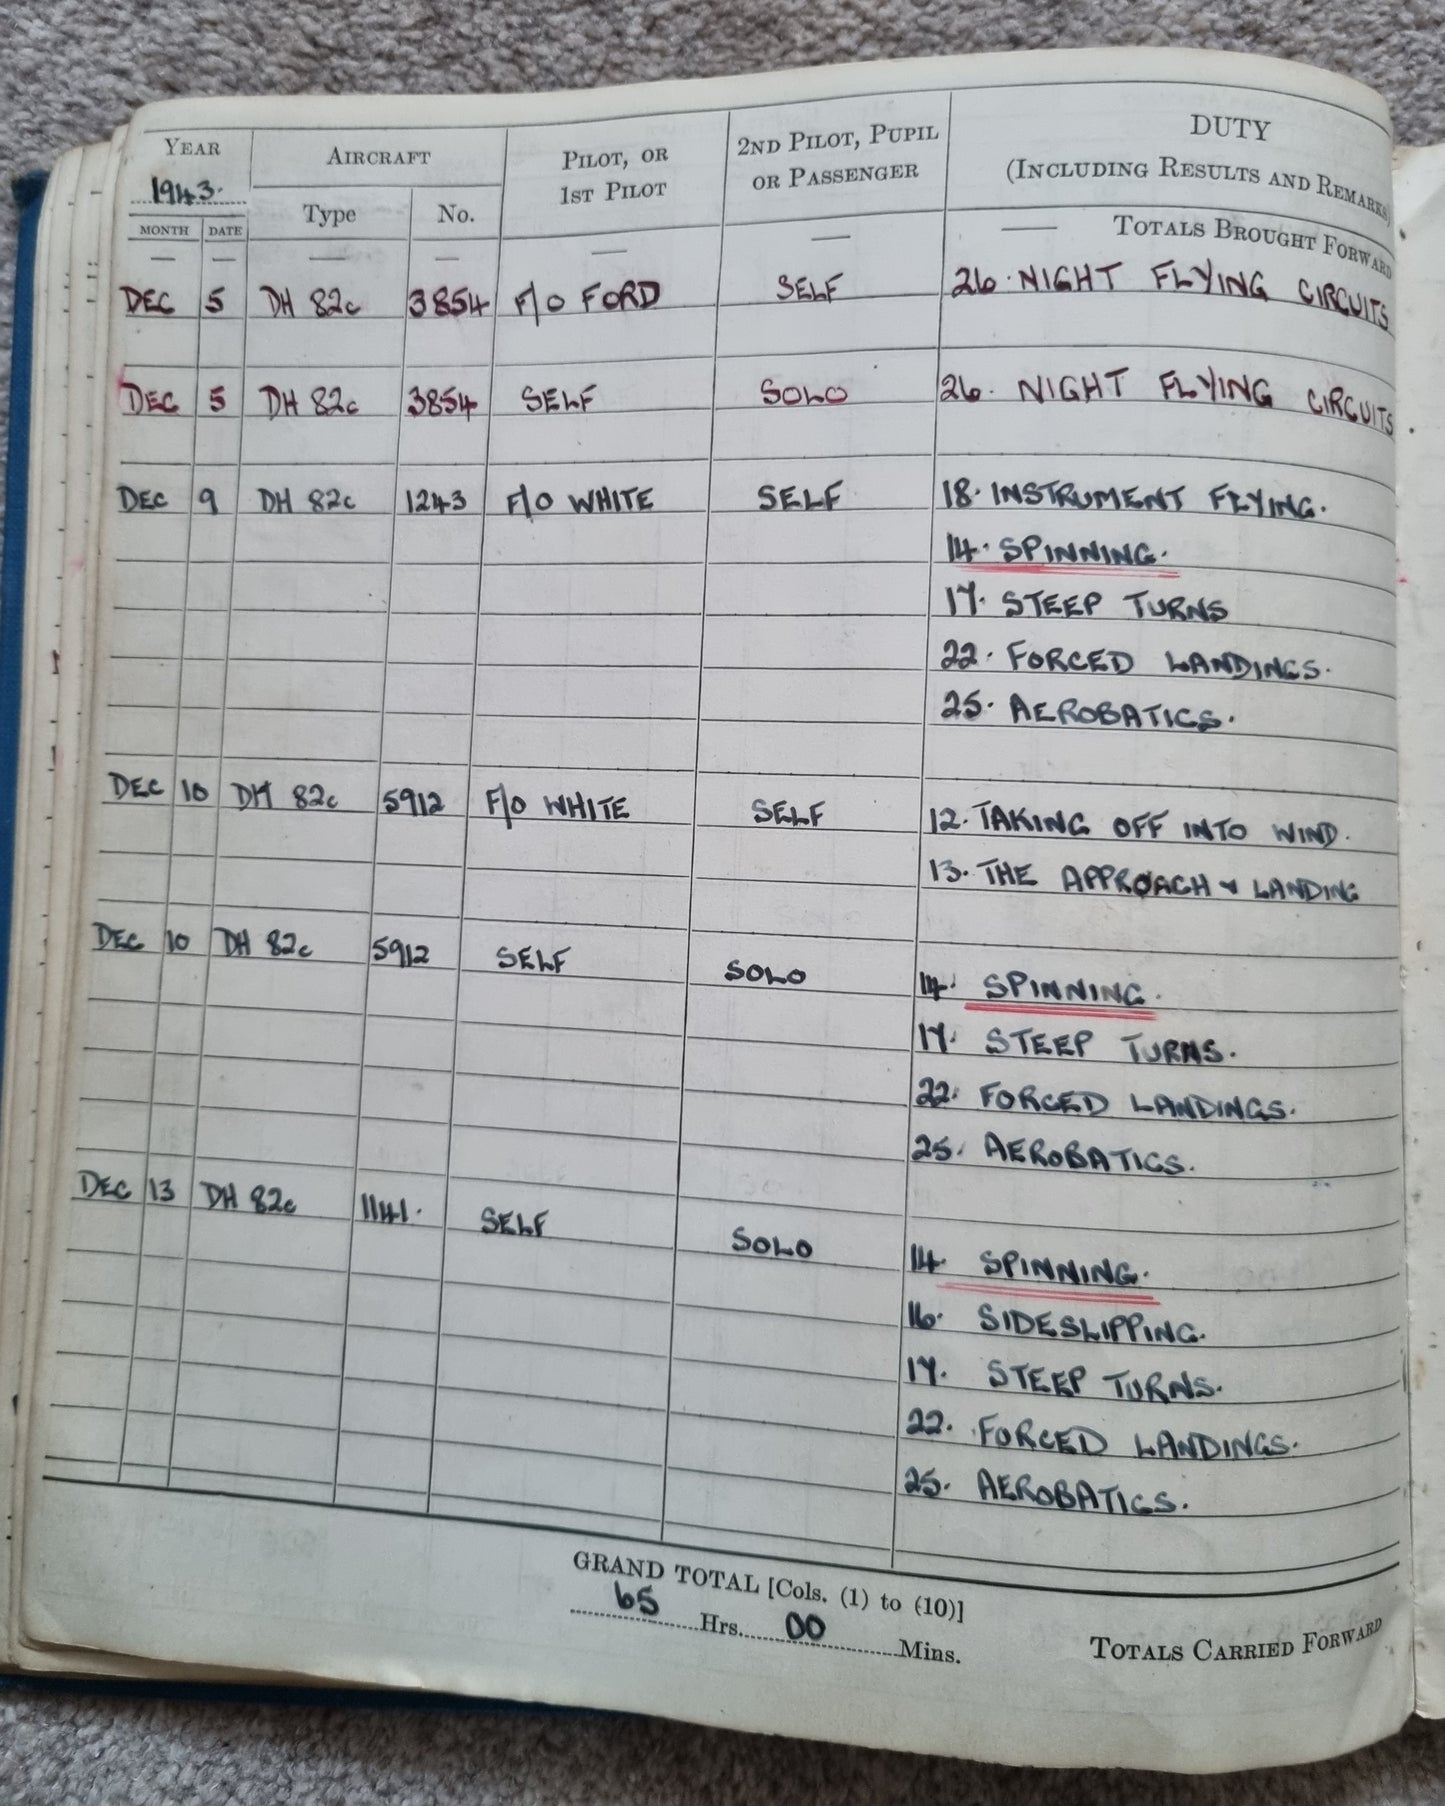 YEAR AIRCRAFT PILOT, OR 1ST PILOT 2ND PILOT, PUPIL OR PASSENGER DUTY (INCLUDING RESULTS AND REMARKS)
1943.
MONTH DATE Type No.
— — — — — — — TOTALS BROUGHT FORWARD
DEC 5 DH 82c 3854 F/O FORD SELF 26. NIGHT FLYING CIRCUITS
DEC 5 DH 82c 3854 SELF SOLO 26. NIGHT FLYING CIRCUITS
DEC 9 DH 82c 1243 F/O WHITE SELF 18. INSTRUMENT FLYING.
14. SPINNING.
17. STEEP TURNS
22. FORCED LANDINGS.
25. AEROBATICS.
DEC 10 DH 82c 5912 F/O WHITE SELF 12. TAKING OFF INTO WIND.
13. THE APPROACH & LANDING
DEC 10 DH 82c 5912 SELF SOLO 14. SPINNING.
17. STEEP TURNS.
22. FORCED LANDINGS.
25. AEROBATICS.
DEC 13 DH 82c 1141. SELF SOLO 14 SPINNING.
16. SIDESLIPPING.
17. STEEP TURNS.
22. FORCED LANDINGS.
25. AEROBATICS.
GRAND TOTAL [Cols. (1) to (10)]
65 Hrs. 00 Mins.
TOTALS CARRIED FORWARD